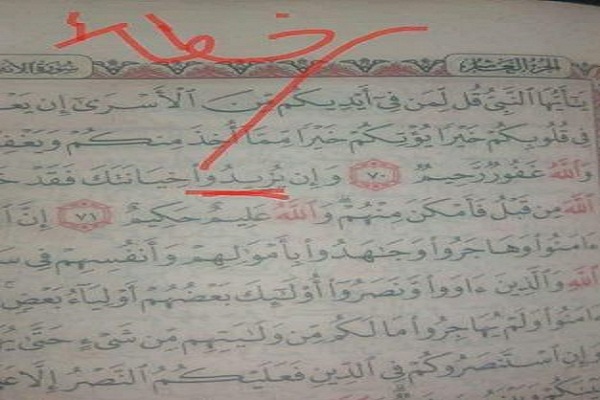 خطأ
الجزء العاشر سورة الأنـ
يَٰٓأَيُّهَا ٱلنَّبِيُّ قُل لِّمَن فِىٓ أَيْدِيكُم مِّنَ ٱلْأَسْرَىٰٓ إِن يَعْـ
فِى قُلُوبِكُمْ خَيْرًا يُؤْتِكُمْ خَيْرًا مِّمَّآ أُخِذَ مِنكُمْ وَيَغْفِـ
وَٱللَّهُ غَفُورٌ رَّحِيمٌ ٧٠ وَإِن تُرِيدُوا۟ خِيَانَتَكَ فَقَدْ خَـ
ٱللَّهَ مِن قَبْلُ فَأَمْكَنَ مِنْهُمْ وَٱللَّهُ عَلِيمٌ حَكِيمٌ ٧١ إِنَّ ٱ
ءَامَنُوا۟ وَهَاجَرُوا۟ وَجَٰهَدُوا۟ بِأَمْوَٰلِهِمْ وَأَنفُسِهِمْ فِى سَـ
ٱللَّهِ وَٱلَّذِينَ ءَاوَوا۟ وَّنَصَرُوٓا۟ أُو۟لَٰٓئِكَ بَعْضُهُمْ أَوْلِيَآءُ بَعْضٍ
ءَامَنُوا۟ وَلَمْ يُهَاجِرُوا۟ مَا لَكُم مِّن وَلَٰيَتِهِم مِّن شَىْءٍ حَتَّىٰ يُهَـ
وَإِنِ ٱسْتَنصَرُوكُمْ فِى ٱلدِّينِ فَعَلَيْكُمُ ٱلنَّصْرُ إِلَّا عَـ